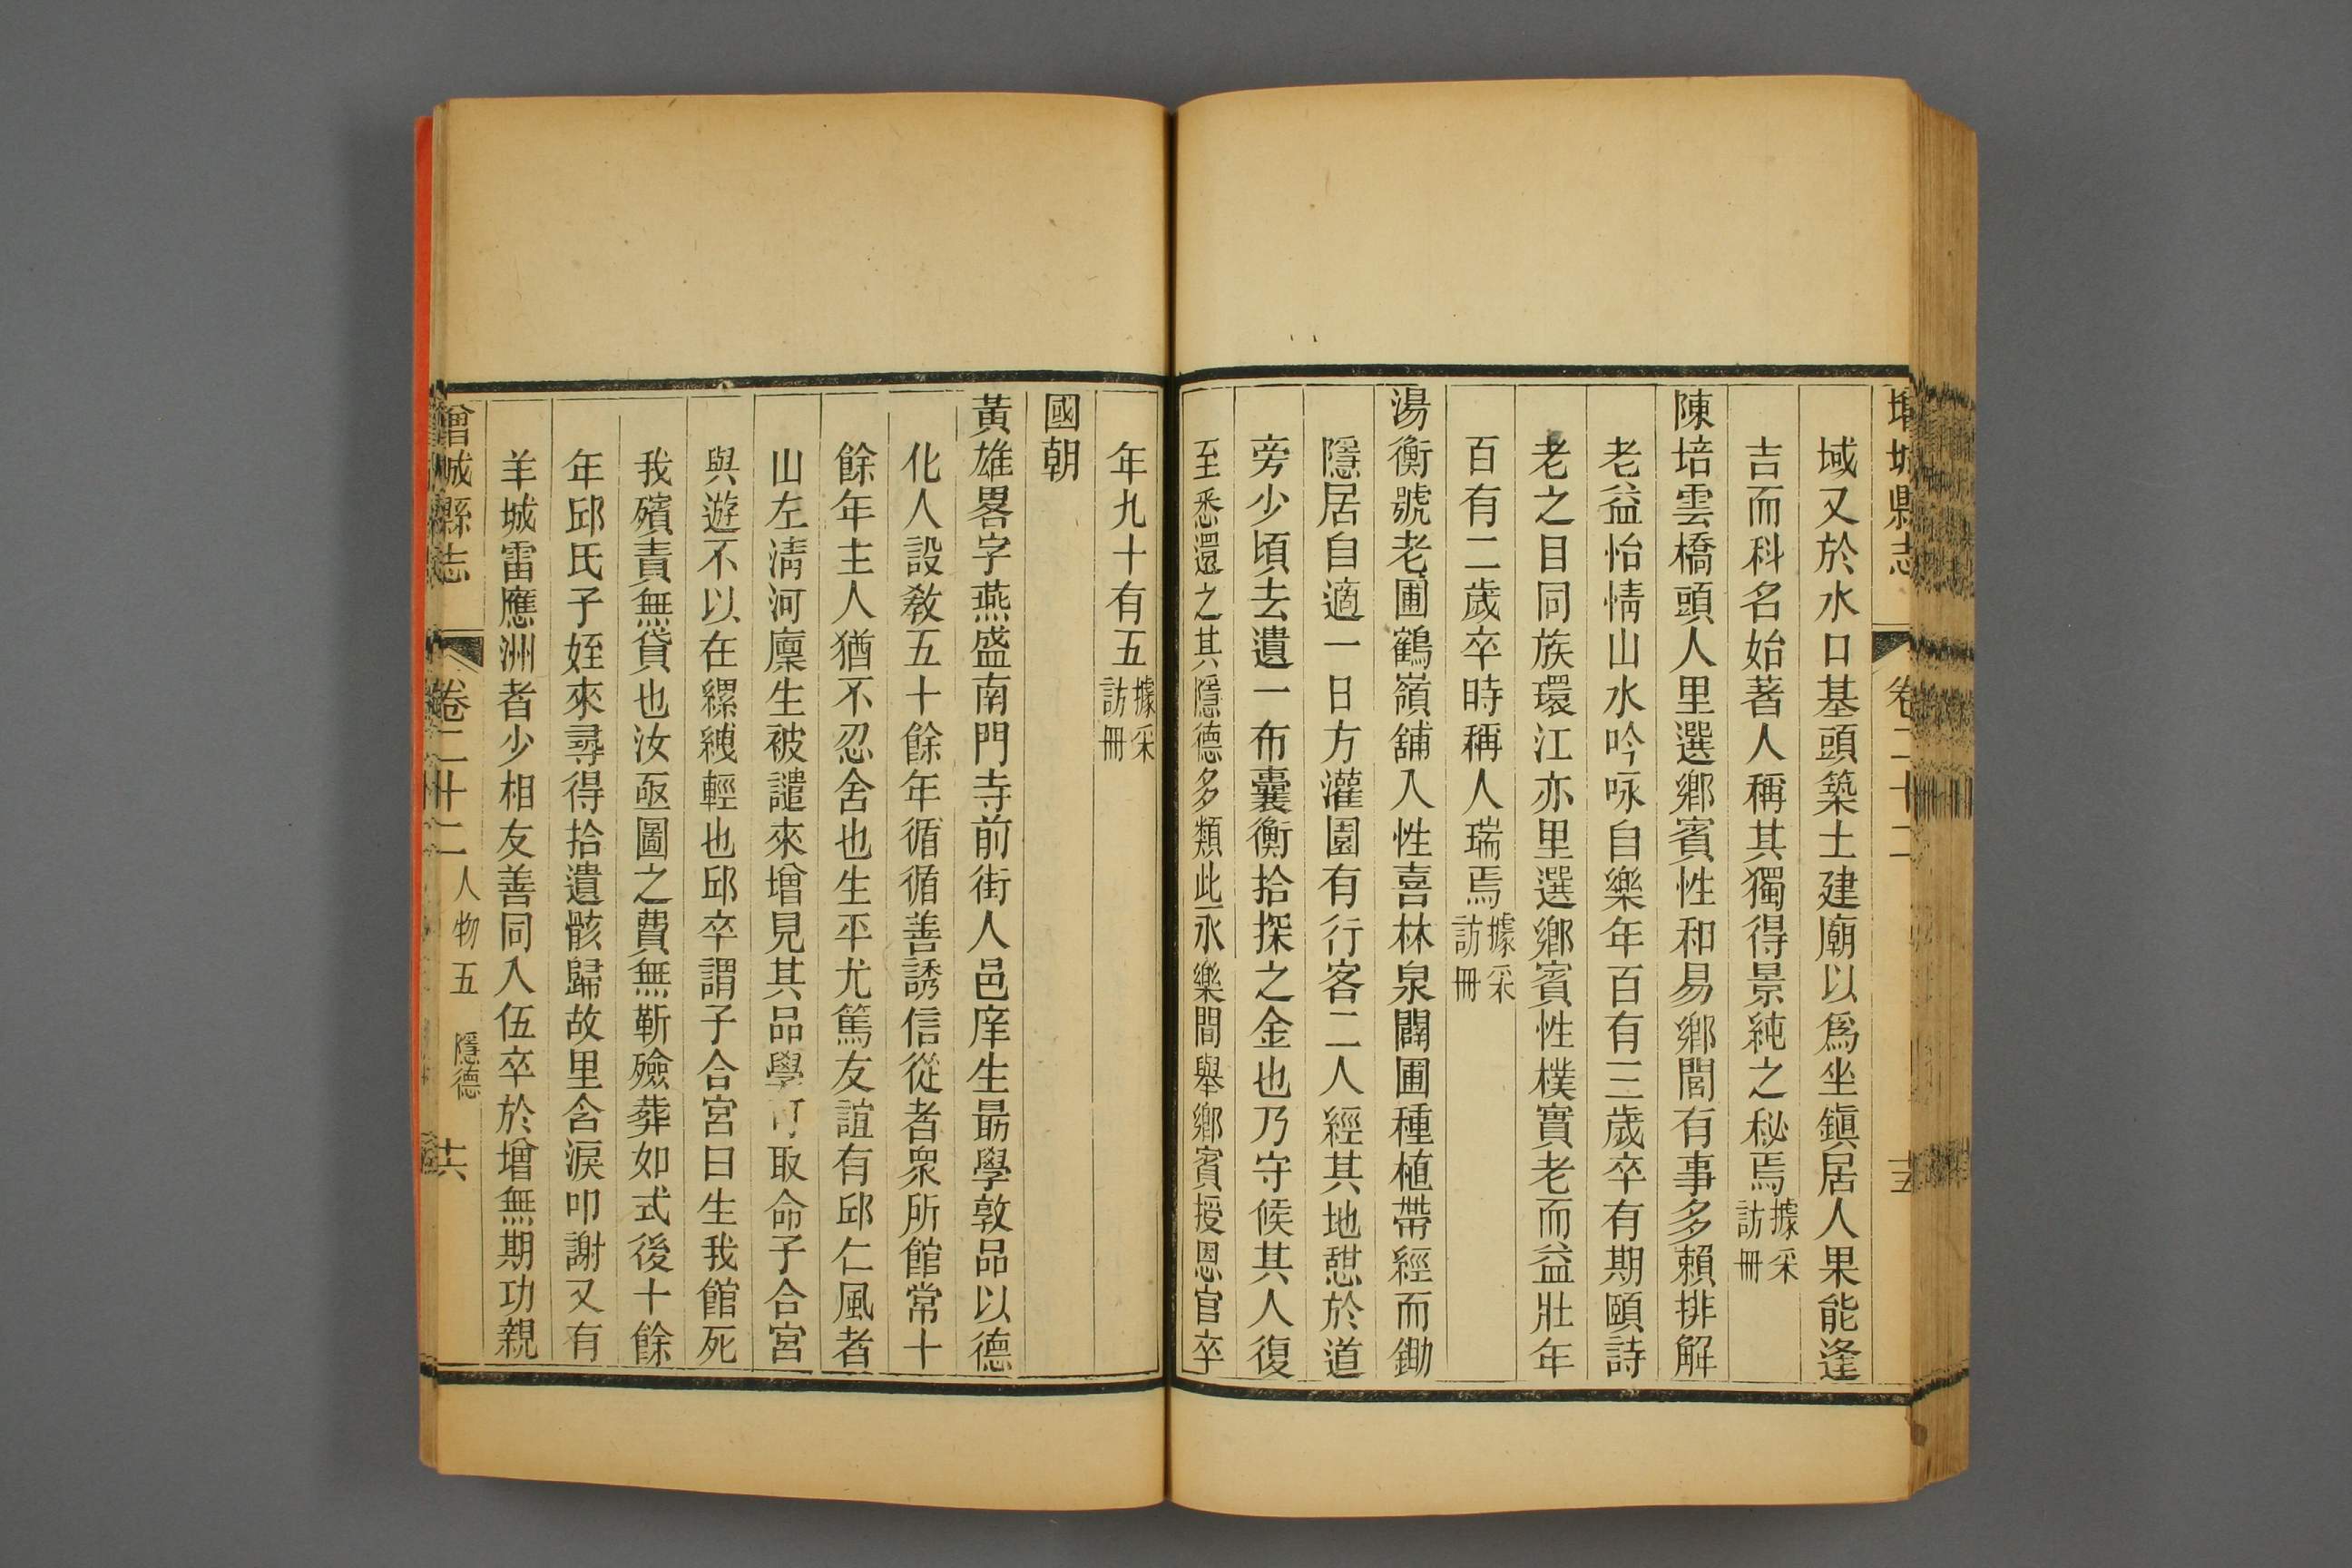 增城縣志 卷二十二 十五
域又於水口基頭築土建廟以爲坐鎭居人果能逢
吉而科名始著人稱其獨得景純之秘焉據采訪冊
陳培雲橋頭人里選鄉賓性和易鄉閭有事多賴排解
老益怡情山水吟咏自樂年百有三歲卒有期頤詩
老之目同族環江亦里選鄉賓性樸實老而益壯年
百有二歲卒時稱人瑞焉據采訪冊
湯衡號老圃鶴嶺舖人性喜林泉闢圃種植帶經而鋤
隱居自適一日方灌園有行客二人經其地憇於道
旁少頃去遺一布囊衡拾探之金也乃守候其人復
至悉還之其隱德多類此永樂間舉鄉賓授恩官卒
年九十有五據采訪冊
國朝
黃雄畧字燕盛南門寺前街人邑庠生最學敦品以德
化人設敎五十餘年循循善誘信從者衆所館常十
餘年主人猶不忍舍也生平尤篤友誼有邱仁風者
山左淸河廩生被譴來增見其品學可取命子合宮
與遊不以在縲絏輕也邱卒謂子合宮曰生我館死
我殯責無貸也汝亟圖之費無靳殮葬如式後十餘
年邱氏子姪來尋得拾遺骸歸故里含淚叩謝又有
羊城雷應洲者少相友善同入伍卒於增無期功親
增城縣志 卷二十二 人物五 隱德 十六